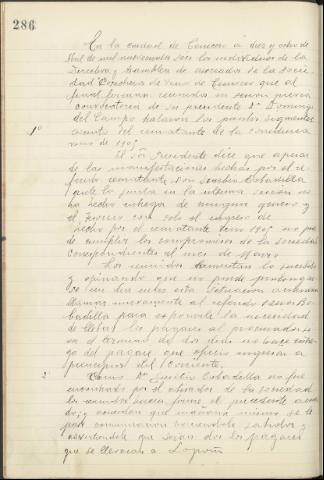 286
En la ciudad de Cenicero á diez y ocho de
Abril de mil novecientos seis los individuos de la
Directiva y Asamblea de asociados de la Socie-
dad Cosechera de vino de Cenicero que al
final firman reunidos en sesion previa
convocatoria de su presidente Dn Domingo
del Campo trataron los puntos siguientes
1º asunto del rematante de la
vino de 1905
El Sr Presidente dice que apesar
de las manifestaciones hechas por el re-
ferido rematante Don Bobadilla
ante la Junta en la ultima sesion no
ha hecho entrega de ningun genero y
el Tesorero con solo el ingreso de
hecho por el rematante vino 1905 no pue
de cumplir los compromisos de la Sociedad
correspondientes al mes de Marzo
Los reunidos lamentan lo sucedido
y opinando que no puede prolongar
se un dia mas esta situacion acuerdan
llamar nuevamente al referido Señor Bo-
badilla para exponerle la necesidad
de llevar los pagares al procurador si
en el término de dos dias no hace entre
go del pagare que ofrecio ingresar a
principios del corriente.
2º Como Dn Bobadilla no fue
encontrado por el de la Sociedad
los reunidos nueva forma el precedente acuer
do; y acuerdan que mañana mismo se le
pase comunicacion haciendole saber y
advirtiendole que seran dos los pagares
que se llevaran a Logroño